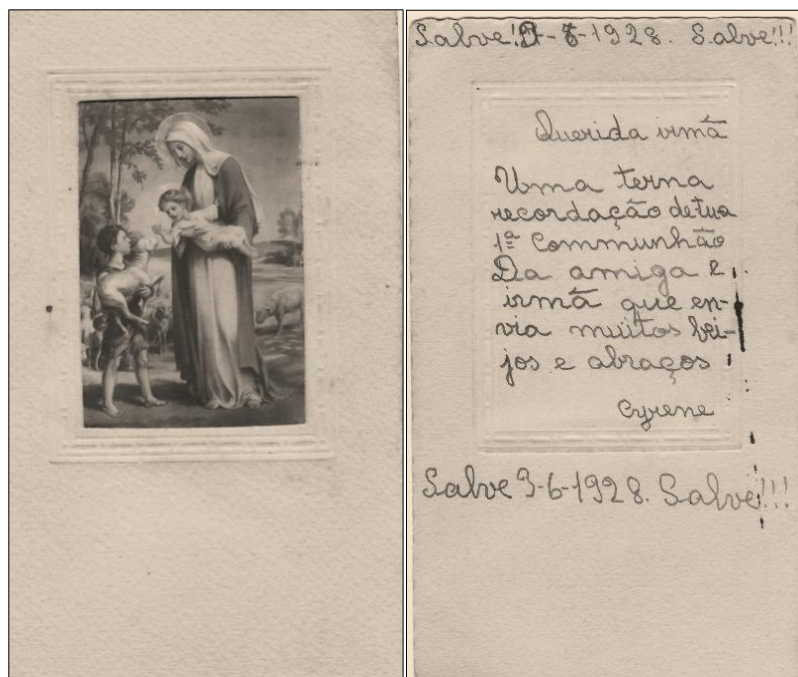 Salve! -1928. Salve!!!
Querida irmã
Uma terna
recordação de tua
1ª Communhão
Da amiga e
irmã que en-
via muitos bei-
jos e abraços
Cyrene
Salve 3-6-1928. Salve!!!